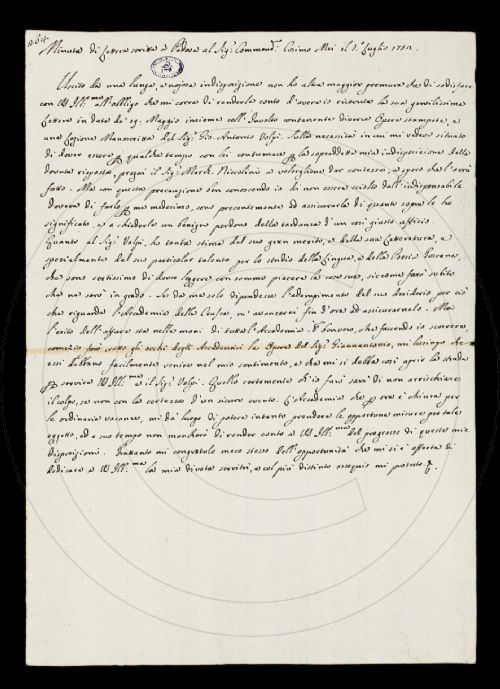 Minuta di Lettera scritta a Padova al Sig.r Commend.r Cosimo Mei il 1.º Luglio 17
Uscito da una lunga, e nojosa indisposizione non ho altra maggior premura che di soddisfare
con VS Ill.ma all'obbligo che mi corre di renderle conto d'avere io ricevuta la sua gentilissima
Lettera in data de' 29. Maggio insieme coll' Involto contenente diverse Opere stampate, e una
Lezione Manoscritta del Sig.r Gio. Antonio Volpi. Nella necessità in cui mi vedevo situato
di dover essere qualche tempo con lei contumace la sopraddetta mia indisposizione della
dovuta risposta, pregai il Sig.r March. Niccolini a volergliene dar contezza, e spero che l'avrà
fatto. Ma con questa precauzione ben conoscendo io di non essere sciolto dall' indispensabile
dovere di farlo me medesimo, sono presentemente ad assicurarla di quanto sopra le ho
significato, e a chiederle un benigno perdono della tardanza d'un così giusto offizio
Quanto al Sig.r Volpi, ho tanta stima del suo gran merito, e della sua Letteratura, e
spezialmente del suo particolar talento per lo studio della Lingua, e della Poesia Toscana,
che sono certissimo di dover leggere con sommo piacere le cose sue, siccome farò subito
che ne sarò in grado. Se da me solo dipendesse l'adempimento del suo desiderio per ciò
che riguarda l'Accademia della Crusca, m'avanzerei fin d'ora ad assicurarnelo. Ma
l'esito dell'affare sta nelle mani di tutta l'Accademia. È ben vero, che facendo io scorrere,
come io farò, sotto gli occhi degli Accademici le Opere del Sig.r Giannantonio, mi lusingo che
essi debbano facilmente venire nel mio sentimento, e che mi si debba così aprir la strada
servire VS Ill.ma e il Sig.r Volpi. Quello certamente ch'io farò sarà di non arrischiare
il colpo, se non con la certezza d'un sicuro evento. L'Accademia che ora è chiusa per
le ordinarie vacanze, mi dà luogo di potere intanto prendere le opportune misure per tale
oggetto, ed a suo tempo non mancherò di render conto a VS Ill.ma del progresso di queste mie
disposizioni. Frattanto mi congratulo meco stesso dell'opportunità che mi si è offerta di
dedicare a VS Ill.ma la mia divota servitù, e col più distinto ossequio mi protesto